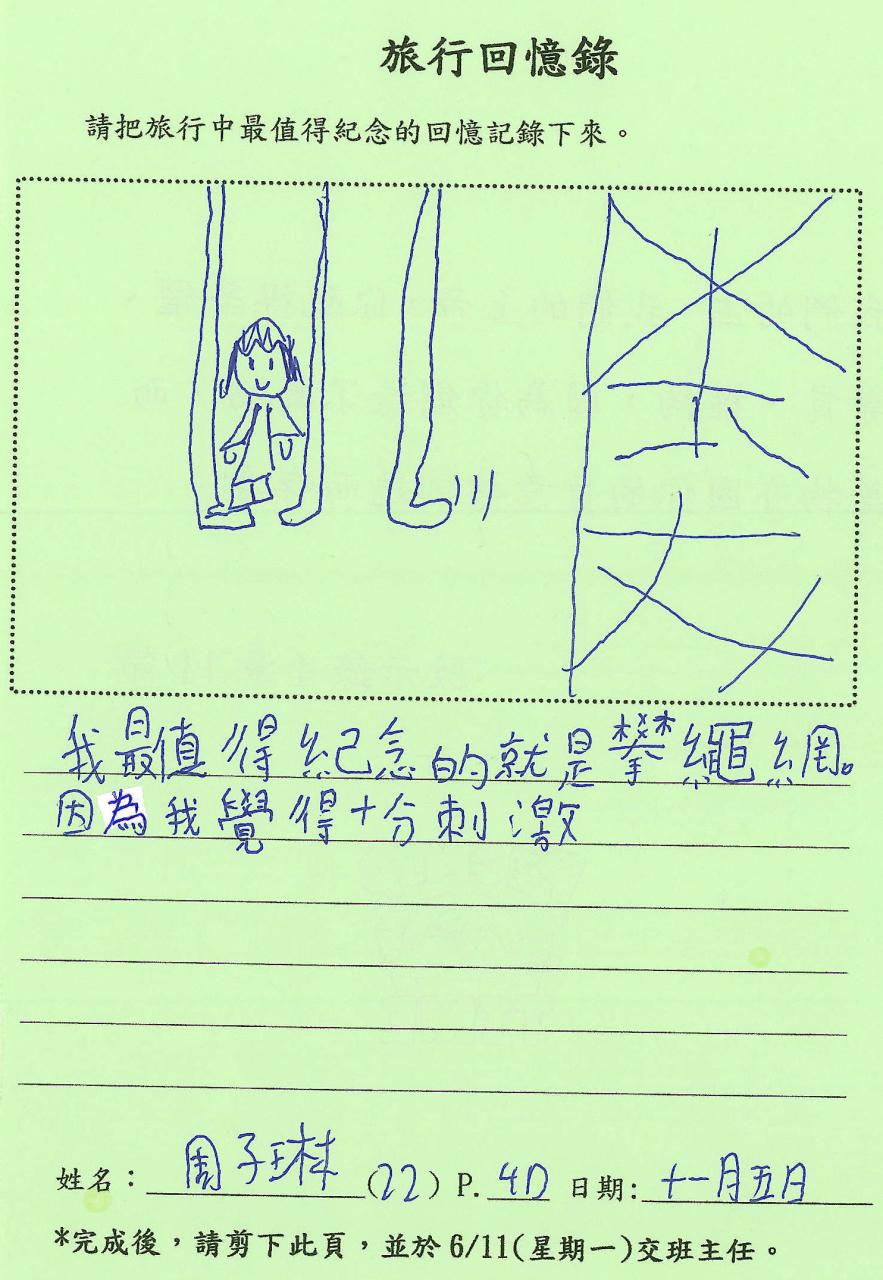 旅行回憶錄
請把旅行中最值得紀念的回憶記錄下來。
我最值得紀念的就是攀繩網。
因為我覺得十分刺激
姓名：周子琳(22) P. 4D 日期:十一月五日
*完成後，請剪下此頁，並於6/11(星期一)交班主任。